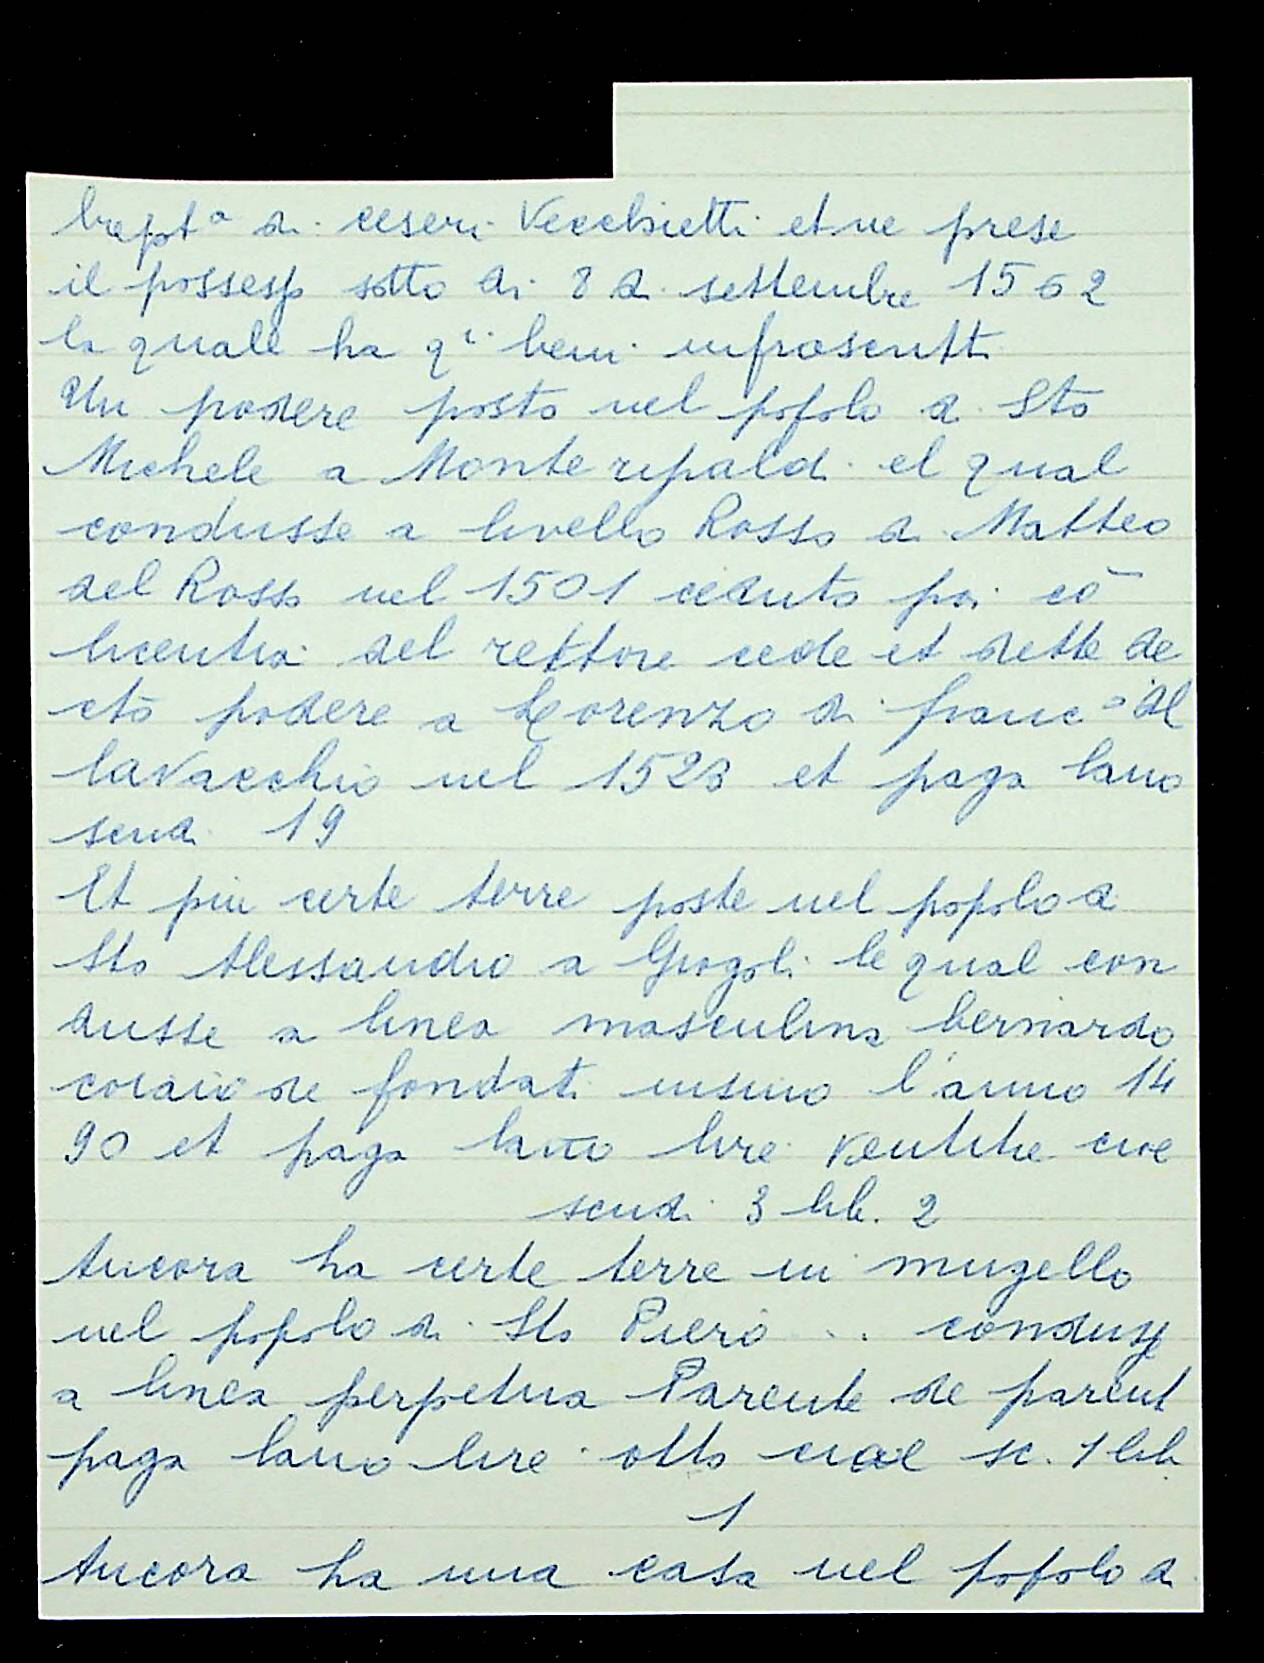 di ceseri Vecchietti et ne prese
il possesso sotto di 8 di settembre 1562
la quale ha q.i beni infrascritti
Un podere posto nel popolo di Sto
Michele a Monte ripaldi el qual
condusse a livello Rosso di Matteo
del Rosso nel 1501 ceduto poi cō
licentia del rettore cede et dette de
cto podere a Lorenzo di franc.o del
lavacchio nel 1523 et paga lano
scudi 19
Et piu certe terre poste nel popolo di
Sto Alessandro a Giogoli le qual con
dusse a linea masculina bernardo
coiaio de fondati insino l'anno 14
90 et paga lano lire ventitre cioe
scudi 3 lib. 2
Ancora ha certe terre in mugello
nel popolo di Sto Piero . . condusse
a linea perpetua Parente de parent
paga lano lire otto cioe sc. 1 lib
1
Ancora ha una casa nel popolo di